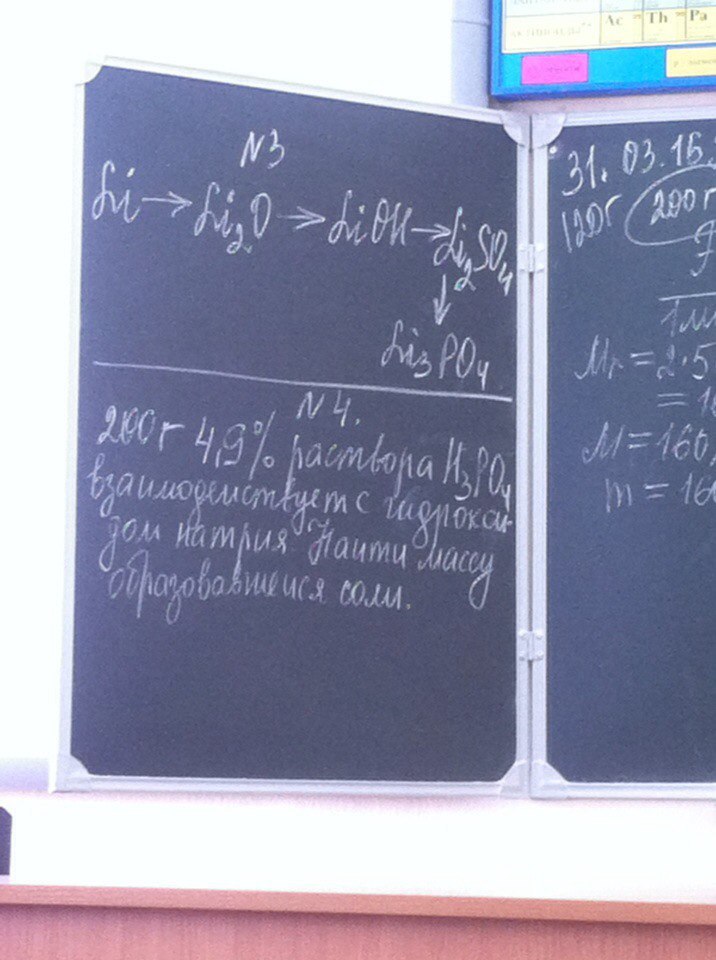 N3
Li → Li₂O → LiOH → Li₂SO₄
↓
Li₃PO₄
N4.
200г 4,9% раствора H₃PO₄
взаимодействует с гидрокси-
дом натрия. Найти массу
образовавшейся соли.
31.03.16
120г 200г
Mr = 2·5
= 16
M = 160
m = 16
Ac Th Pa